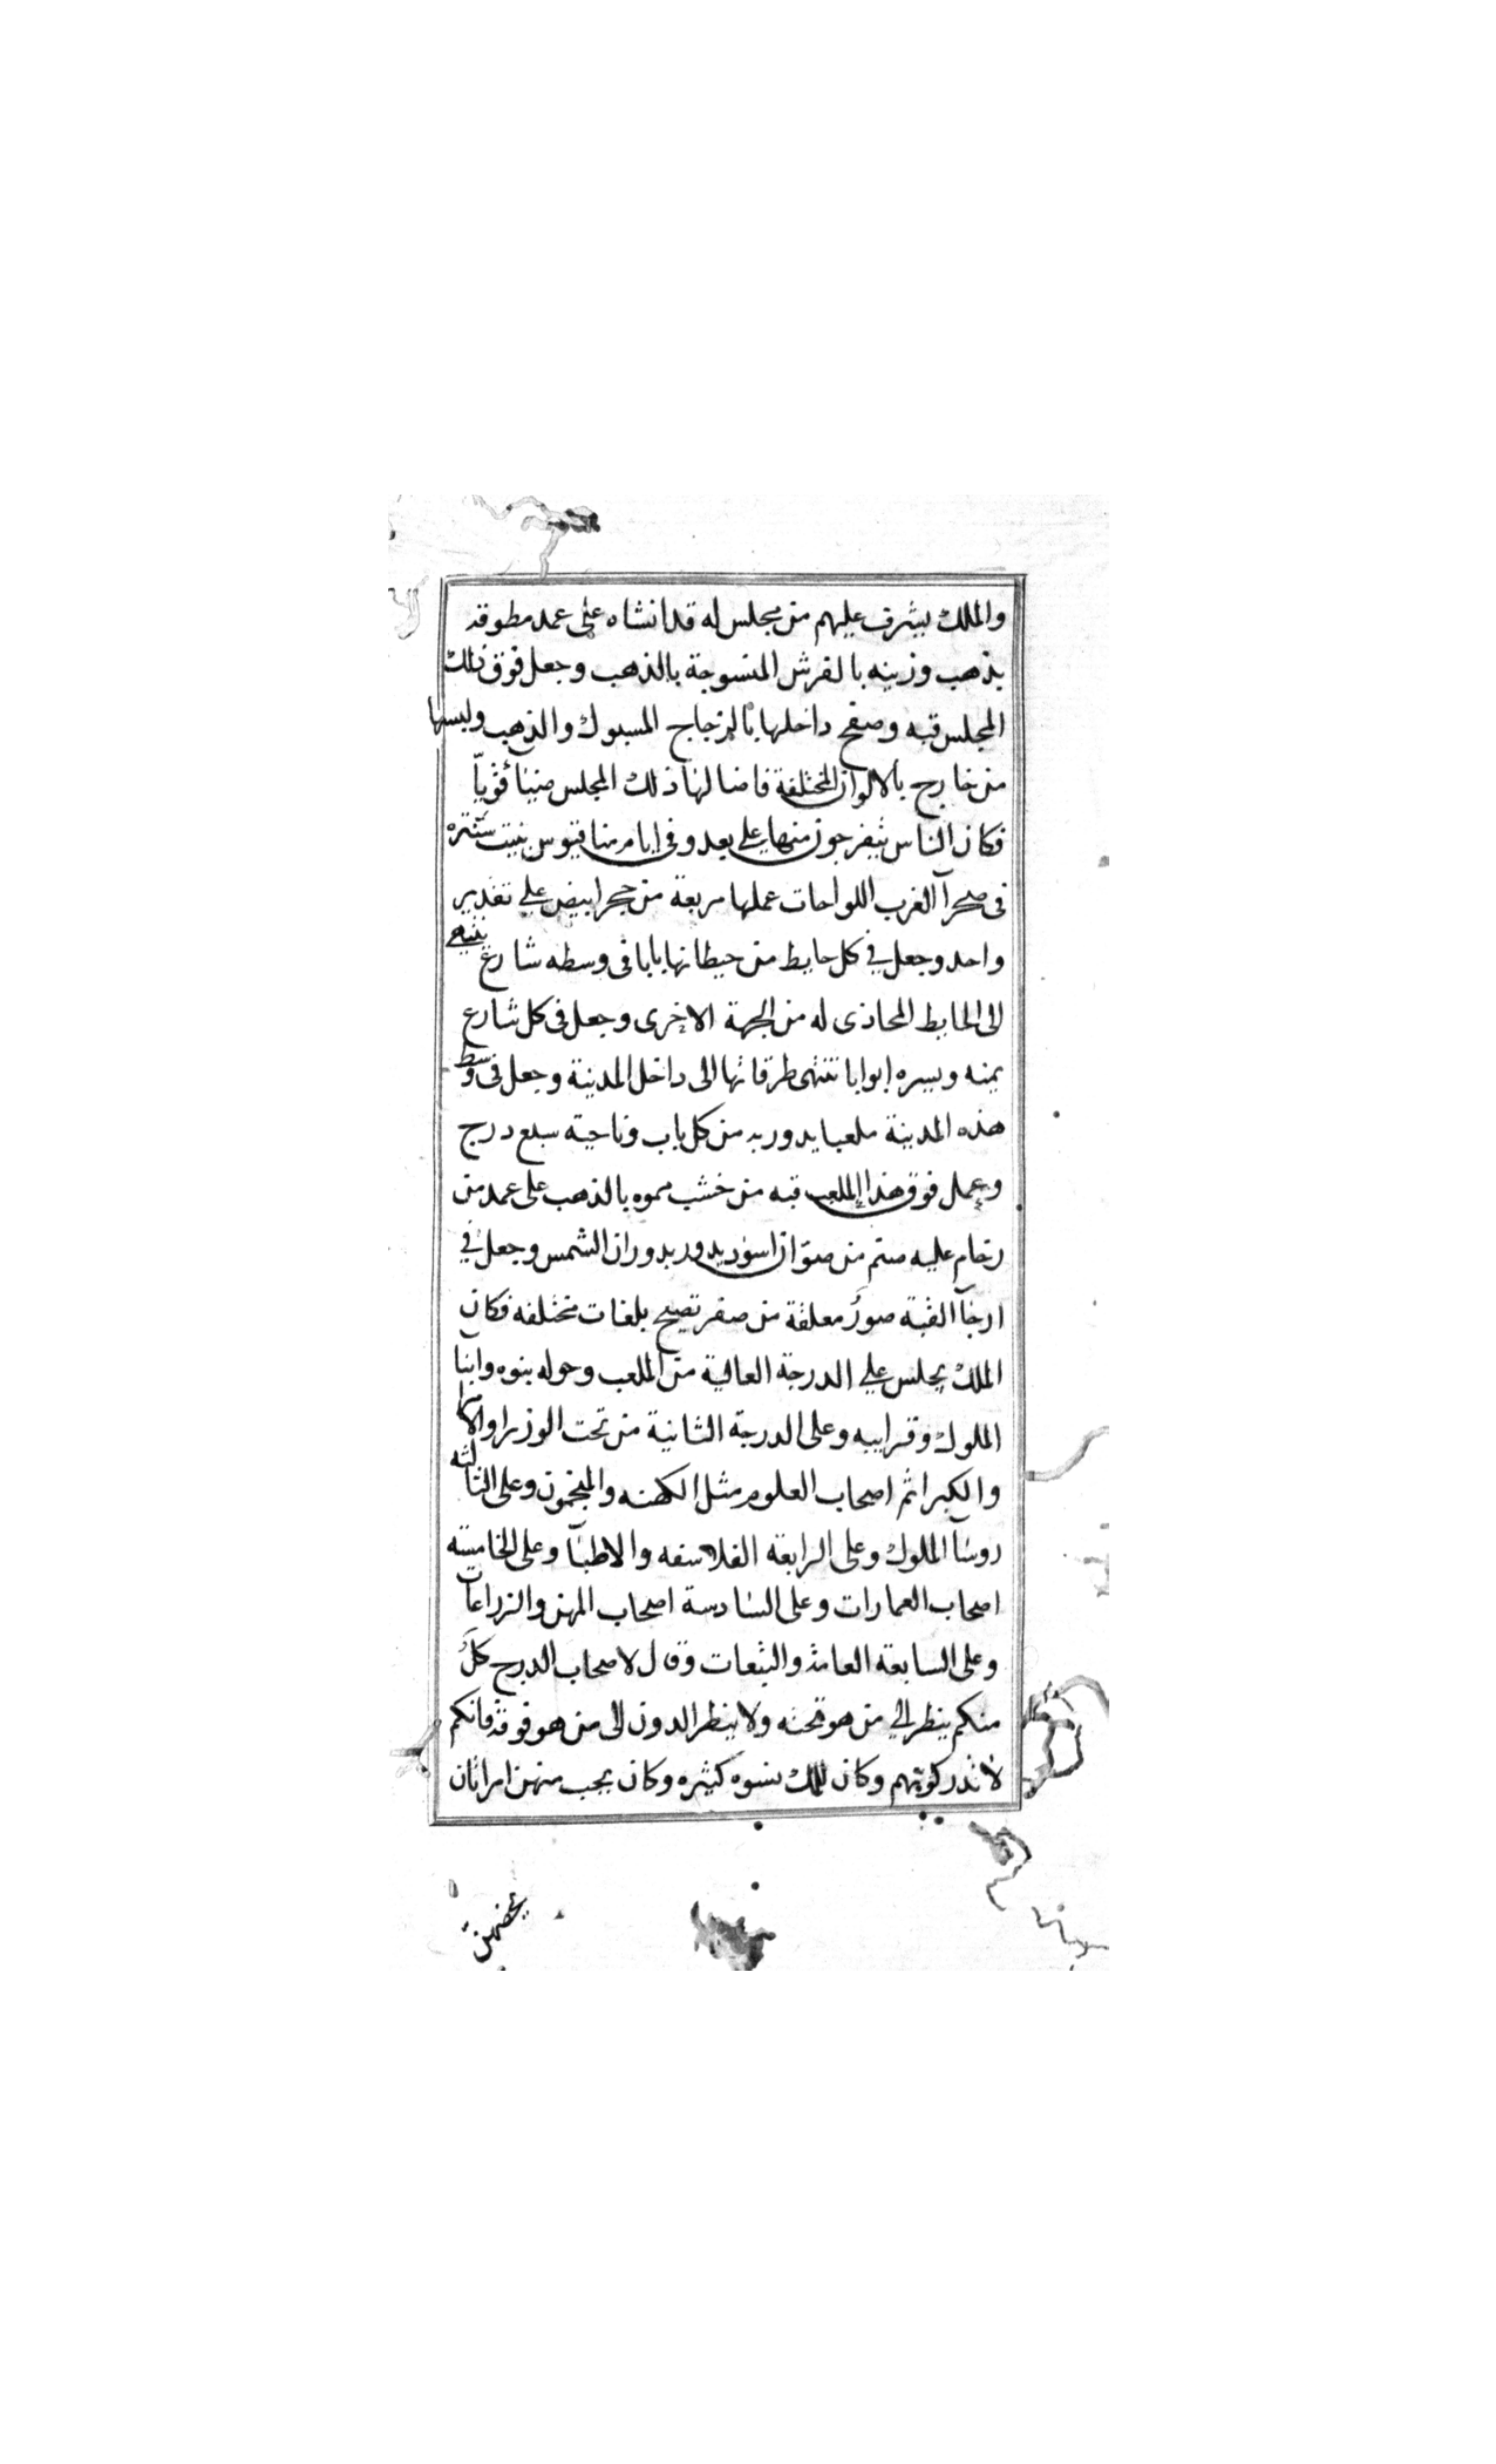 والملك يشرف عليهم من مجلس له قد انشاه على عمد مطوقه
بذهب وزينه بالفرش المنسوجة بالذهب وجعل فوق ذلك
المجلس قبه وصفح داخلها بالزجاج المسبوك والذهب ولبسها
من خارج بالالوان المختلفة فاضا لها ذلك المجلس ضيئا قويا
فكان الناس يتفرجون منها على بعد وفى ايام مناقيوس بنيت سنتره
فى صحرآ الغرب اللواحات عملها مربعة من حجر ابيض على تقدير
واحد وجعل في كل حايط من حيطانها بابا فى وسطه شارع ينتهى
الى الحايط المحاذى له من الجهة الاخرى وجعل فى كل شارع
يمنه ويسره ابوابا تنتهى طرقاتها الى داخل المدينة وجعل فى وسط
هذه المدينة ملعبا يدور به من كل باب وناحية سبع درج
وعمل فوق هذا الملعب قبه من خشب مموه بالذهب على عمد من
رخام عليه صنم من صوّان اسود يدور بدوران الشمس وجعل في
ارجآ القبة صورُ معلقة من صفر تصيح بلغات مختلفه فكان
الملك يجلس على الدرجة العالية من الملعب وحوله بنوه وابنآ
الملوك وقرايبه وعلى الدرجة الثانية من تحت الوزرا والامرا
والكبرا ثم اصحاب العلوم مثل الكهنه والمنجمون وعلى الثالثه
روسآ الملوك وعلى الرابعة الفلاسفه والاطبآ وعلى الخامسه
اصحاب العمارات وعلى السادسة اصحاب المهن والزراعات
وعلى السابعة العامة والتبعات وقال لاصحاب الدرج كلُ
منكم ينظر الي من هو تحته ولا ينظر الدون الى من هو فوقه فانكم
لا تدركوتهم وكان للملك نسوه كثيره وكان يحب منهن امراتان